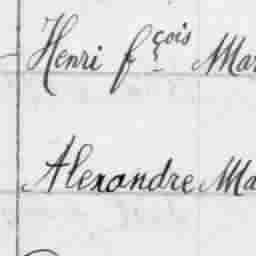 Henri fçois Mar
Alexandre Ma